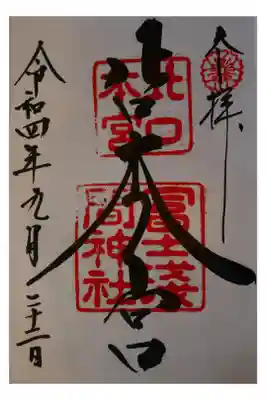 奉拝
北口
本宮
冨士淺
間神社
令和四年九月二十二日